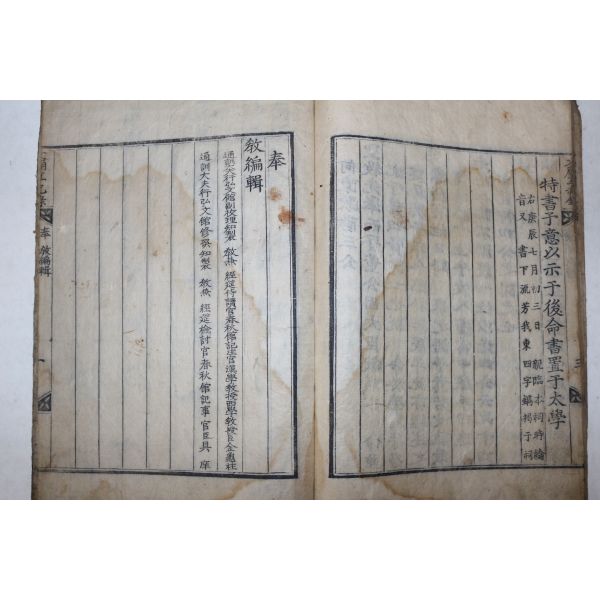 特書予意以示于後命書置于太學
右庚辰七月初三日 親臨本祠時綸
音又書下流芳我東四字鏤揭于祠
三
奉
教編輯
通訓大夫行弘文館副校理知製 教兼 經筵侍讀官春秋館記注官漢學教授西學教授臣金憲柱
通訓大夫行弘文館修撰知製 教兼 經筵檢討官春秋館記事官臣具庠
奉 教編輯
一